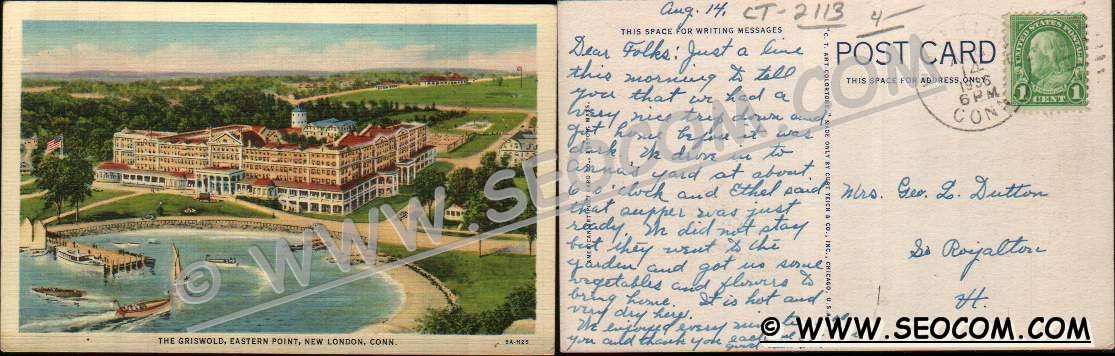 THE GRISWOLD, EASTERN POINT, NEW LONDON, CONN.
5A-H25
© WWW.SEOCOM.COM
Aug. 14,
CT-2113
4
THIS SPACE FOR WRITING MESSAGES
Dear Folks: Just a line
this morning to tell
you that we had a
very nice trip down and
got home before it was
dark. We drove in to
Anna's yard at about
6 o'clock and Ethel said
that supper was just
ready. We did not stay
but they went to the
garden and got us some
vegetables and flowers to
bring home. It is hot and
very dry here.
We enjoyed every minute
you and thank you each
"C. T. ART-COLORTONE" MADE ONLY BY CURT TEICH & CO., INC., CHICAGO, U.S.A.
POST CARD
THIS SPACE FOR ADDRESS ONLY
1936
6 PM
CONN
UNITED STATES POSTAGE
1 CENT 1
Mrs. Geo. L. Dutton
So Royalton
Vt.
© WWW.SEOCOM.COM